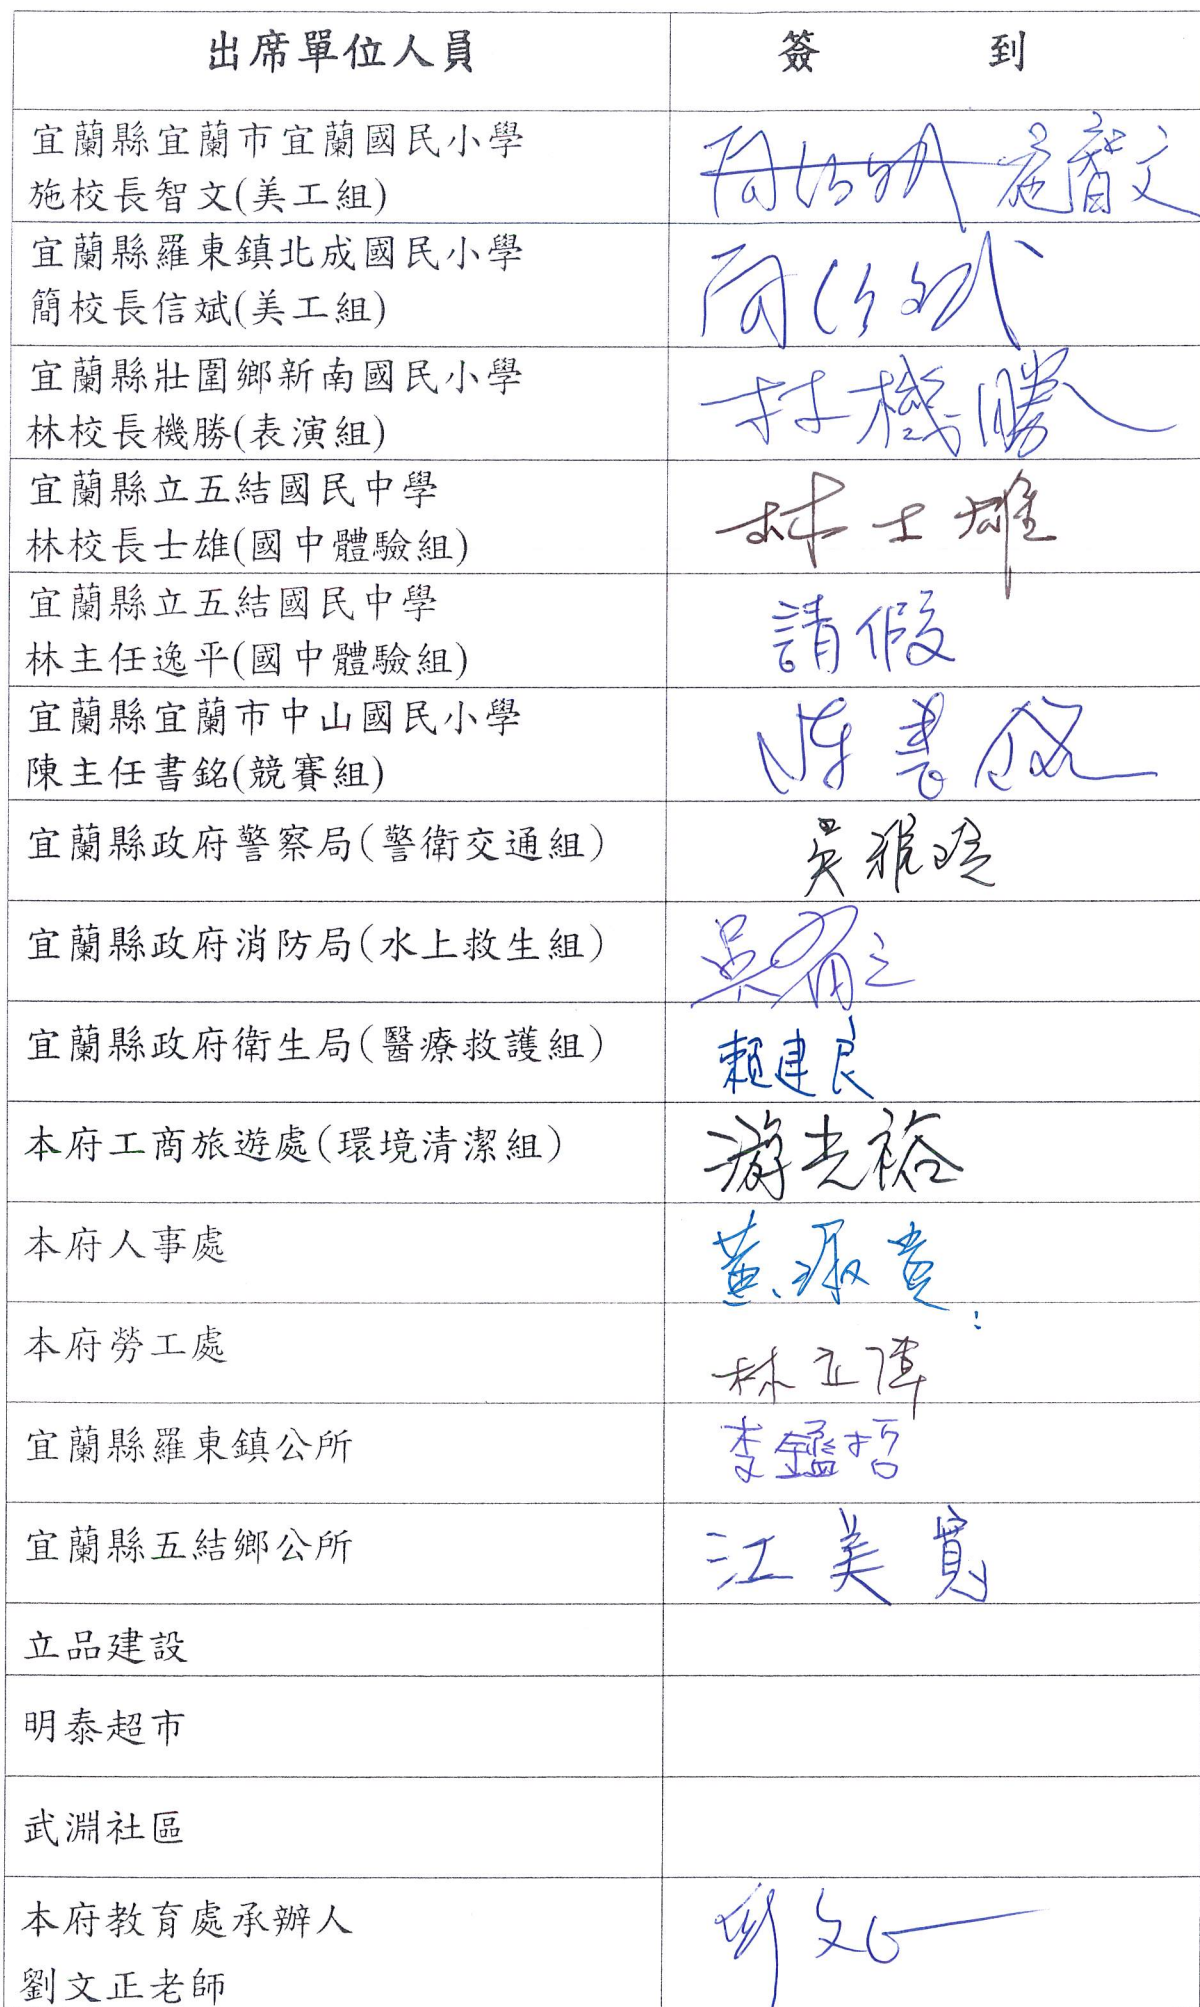 出席單位人員
簽到
宜蘭縣宜蘭市宜蘭國民小學
施校長智文(美工組)
簡信斌 施智文
宜蘭縣羅東鎮北成國民小學
簡校長信斌(美工組)
簡信斌
宜蘭縣壯圍鄉新南國民小學
林校長機勝(表演組)
林機勝
宜蘭縣立五結國民中學
林校長士雄(國中體驗組)
林士雄
宜蘭縣立五結國民中學
林主任逸平(國中體驗組)
請假
宜蘭縣宜蘭市中山國民小學
陳主任書銘(競賽組)
陳書銘
宜蘭縣政府警察局(警衛交通組)
宜蘭縣政府消防局(水上救生組)
宜蘭縣政府衛生局(醫療救護組)
賴建良
本府工商旅遊處(環境清潔組)
游光裕
本府人事處
本府勞工處
林立偉
宜蘭縣羅東鎮公所
李鑑哲
宜蘭縣五結鄉公所
江美寬
立品建設
明泰超市
武淵社區
本府教育處承辦人
劉文正老師
劉文正